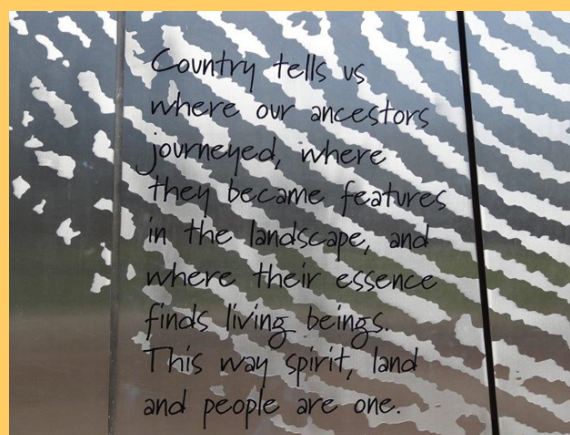 Country tells us
where our ancestors
journeyed, where
they became features
in the landscape, and
where their essence
finds living beings.
This way spirit, land
and people are one.